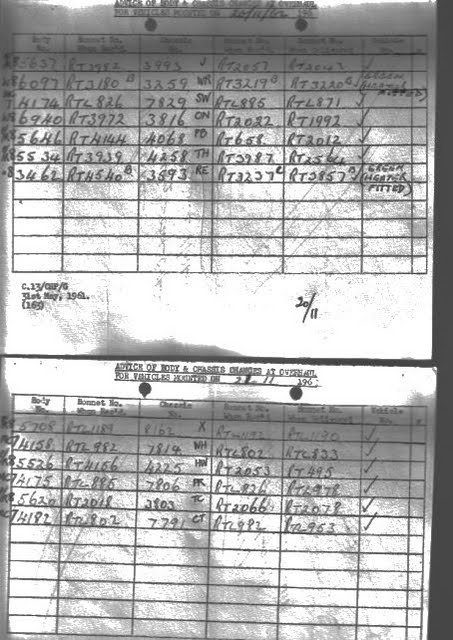 ADVICE OF BODY & CHASSIS CHANGES AT OVERHAUL
FOR VEHICLES MOUNTED ON 20/11/62 196
Body No. Bonnet No. When Rec'd. Chassis No. Bonnet No. Bonnet No. When Delivered Vehicle No.
5637 RT3982 3993 J RT2057 RT2043 ✓
6097 RT3180 B 3259 WR RT3219 B RT3220 B ✓ (GREEN HEATER FITTED)
4174 RTL826 7829 SW RTL885 RTL871 ✓
6940 RT3772 3816 ON RT2022 RT1992 ✓
5646 RT4144 4068 PD RT658 RT2012 ✓
5534 RT3939 4258 TH RT3987 ✓
3462 RT4540 B 3593 RE RT3237 RT3857 ✓ (GREEN HEATER FITTED)
C.13/CHF/G
31st May, 1961.
(163)
20/11
ADVICE OF BODY & CHASSIS CHANGES AT OVERHAUL
FOR VEHICLES MOUNTED ON 21 11 196
Body No. Bonnet No. When Rec'd. Chassis No. Bonnet No. Bonnet No. When Delivered Vehicle No.
5708 RTL1189 8162 X RTL1192 RTL1190 ✓
4158 RTL982 7814 WH RTL802 RTL833 ✓
5526 RT4156 4225 HW RT2053 RT495 ✓
4175 RTL885 7806 PR RTL826 RTL978 ✓
5620 RT2018 3803 TC RT2066 RT2078 ✓
4182 RTL802 7791 CT RTL982 RTL953 ✓